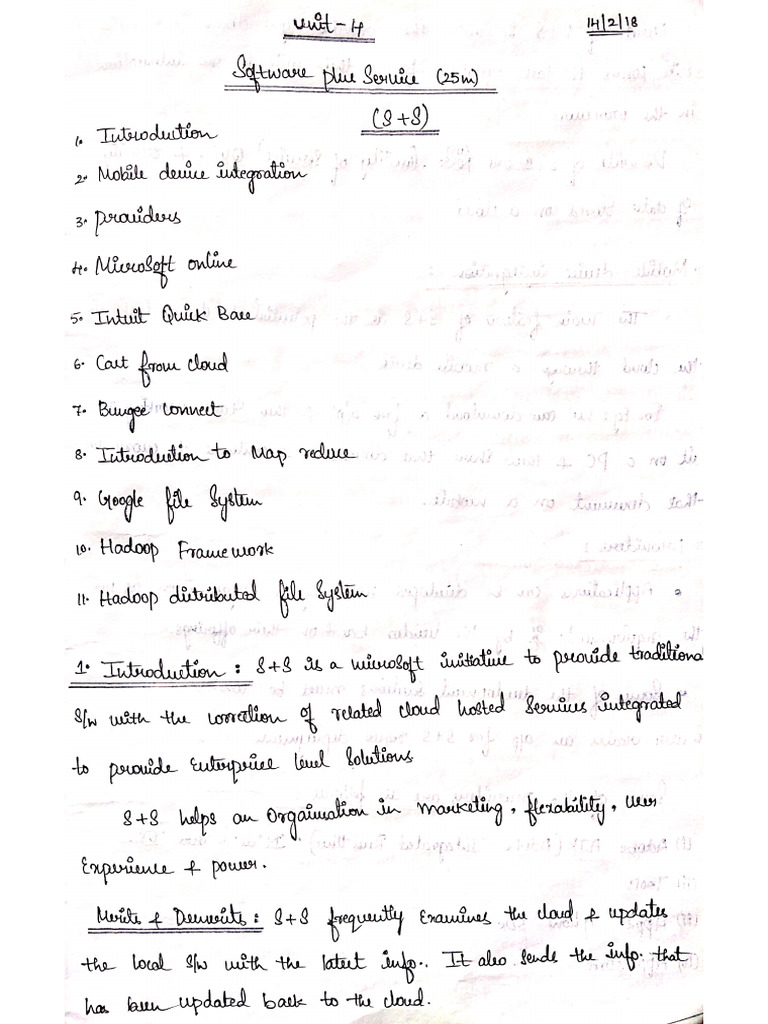 Unit-4
14/2/18
Software plus Service (25m)
(S+S)
1. Introduction
2. Mobile device integration
3. Providers
4. Microsoft online
5. Intuit Quick Base
6. Cast from cloud
7. Bungee connect
8. Introduction to Map reduce
9. Google file System
10. Hadoop Framework
11. Hadoop distributed file System
1. Introduction : S+S is a microsoft initiative to provide traditional
S/w with the of related cloud hosted Services integrated
to provide Enterprice level Solutions
S+S helps an Orgaination in marketing, flexability, user
Experience & power.
Merits & Demerits : S+S frequently Examines the cloud & updates
the local S/w with the latest info.. It also sends the info. that
has been updated back to the cloud.